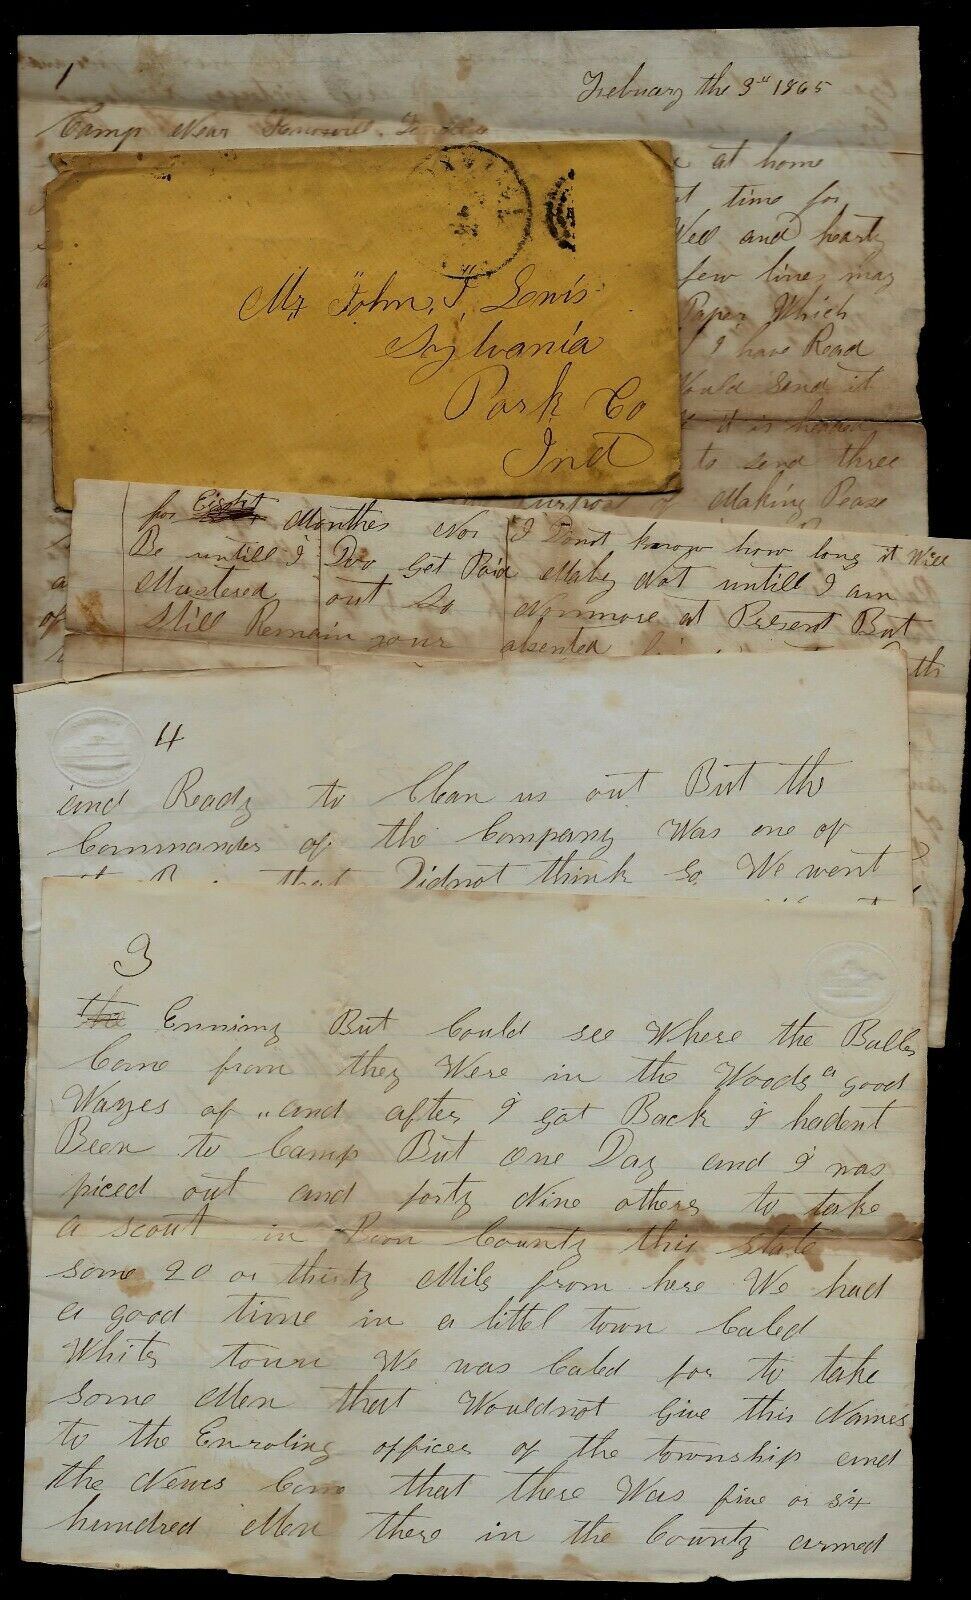 1
Febuary the 3rd 1865
Camp Near
at home
time for
Well and hearty
few lines may
Paper Which
I have Read
Would Send it
it is headed
to send three
purpose of Making Pease
Mr John, T, Lewis
Sylvania
Park Co
Ind
for Eight Monthes Nor I Donot know how long it Will
Be untill I Doo Get Paid Maby Not untill I am
Mustered out So Nommore at Present But
Still Remain your absented
4
and Ready to Clean us out But the
Commander of the Company Was one of
that Didnot think So We went
3
the Ennimy But Could see Where the Balls
Come from they Were in the Woods a good
Wayes of and after I got Back I hadent
Been to Camp But one Day and I was
piced out and forty Nine others to take
a scout in County this State
some 20 or thirty Mils from here We had
a good time in a littel town Caled
Whites town We was Caled for to take
some Men that Wouldnot Give this Names
to the Enroling officer of the township and
the News Come that there Was five or six
hundred Men there in the County armed